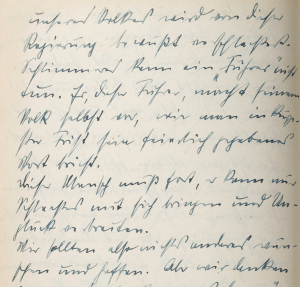 unseres Volkes wird von dieser
Regierung bewußt verschlechtert.
Schlimmeres kann ein "Führer" nicht
tun. Er, dieser Führer, macht seinem
Volk selbst vor, wie man in kürze-
ster Frist sein feierlich gegebenes
Wort bricht.
Dieser Mensch muß fort, er kann nur
Schlechtes mit sich bringen und Un-
glück verbreiten.
Wir sollten also nichts anderes wün-
schen und hoffen. Aber wir denken